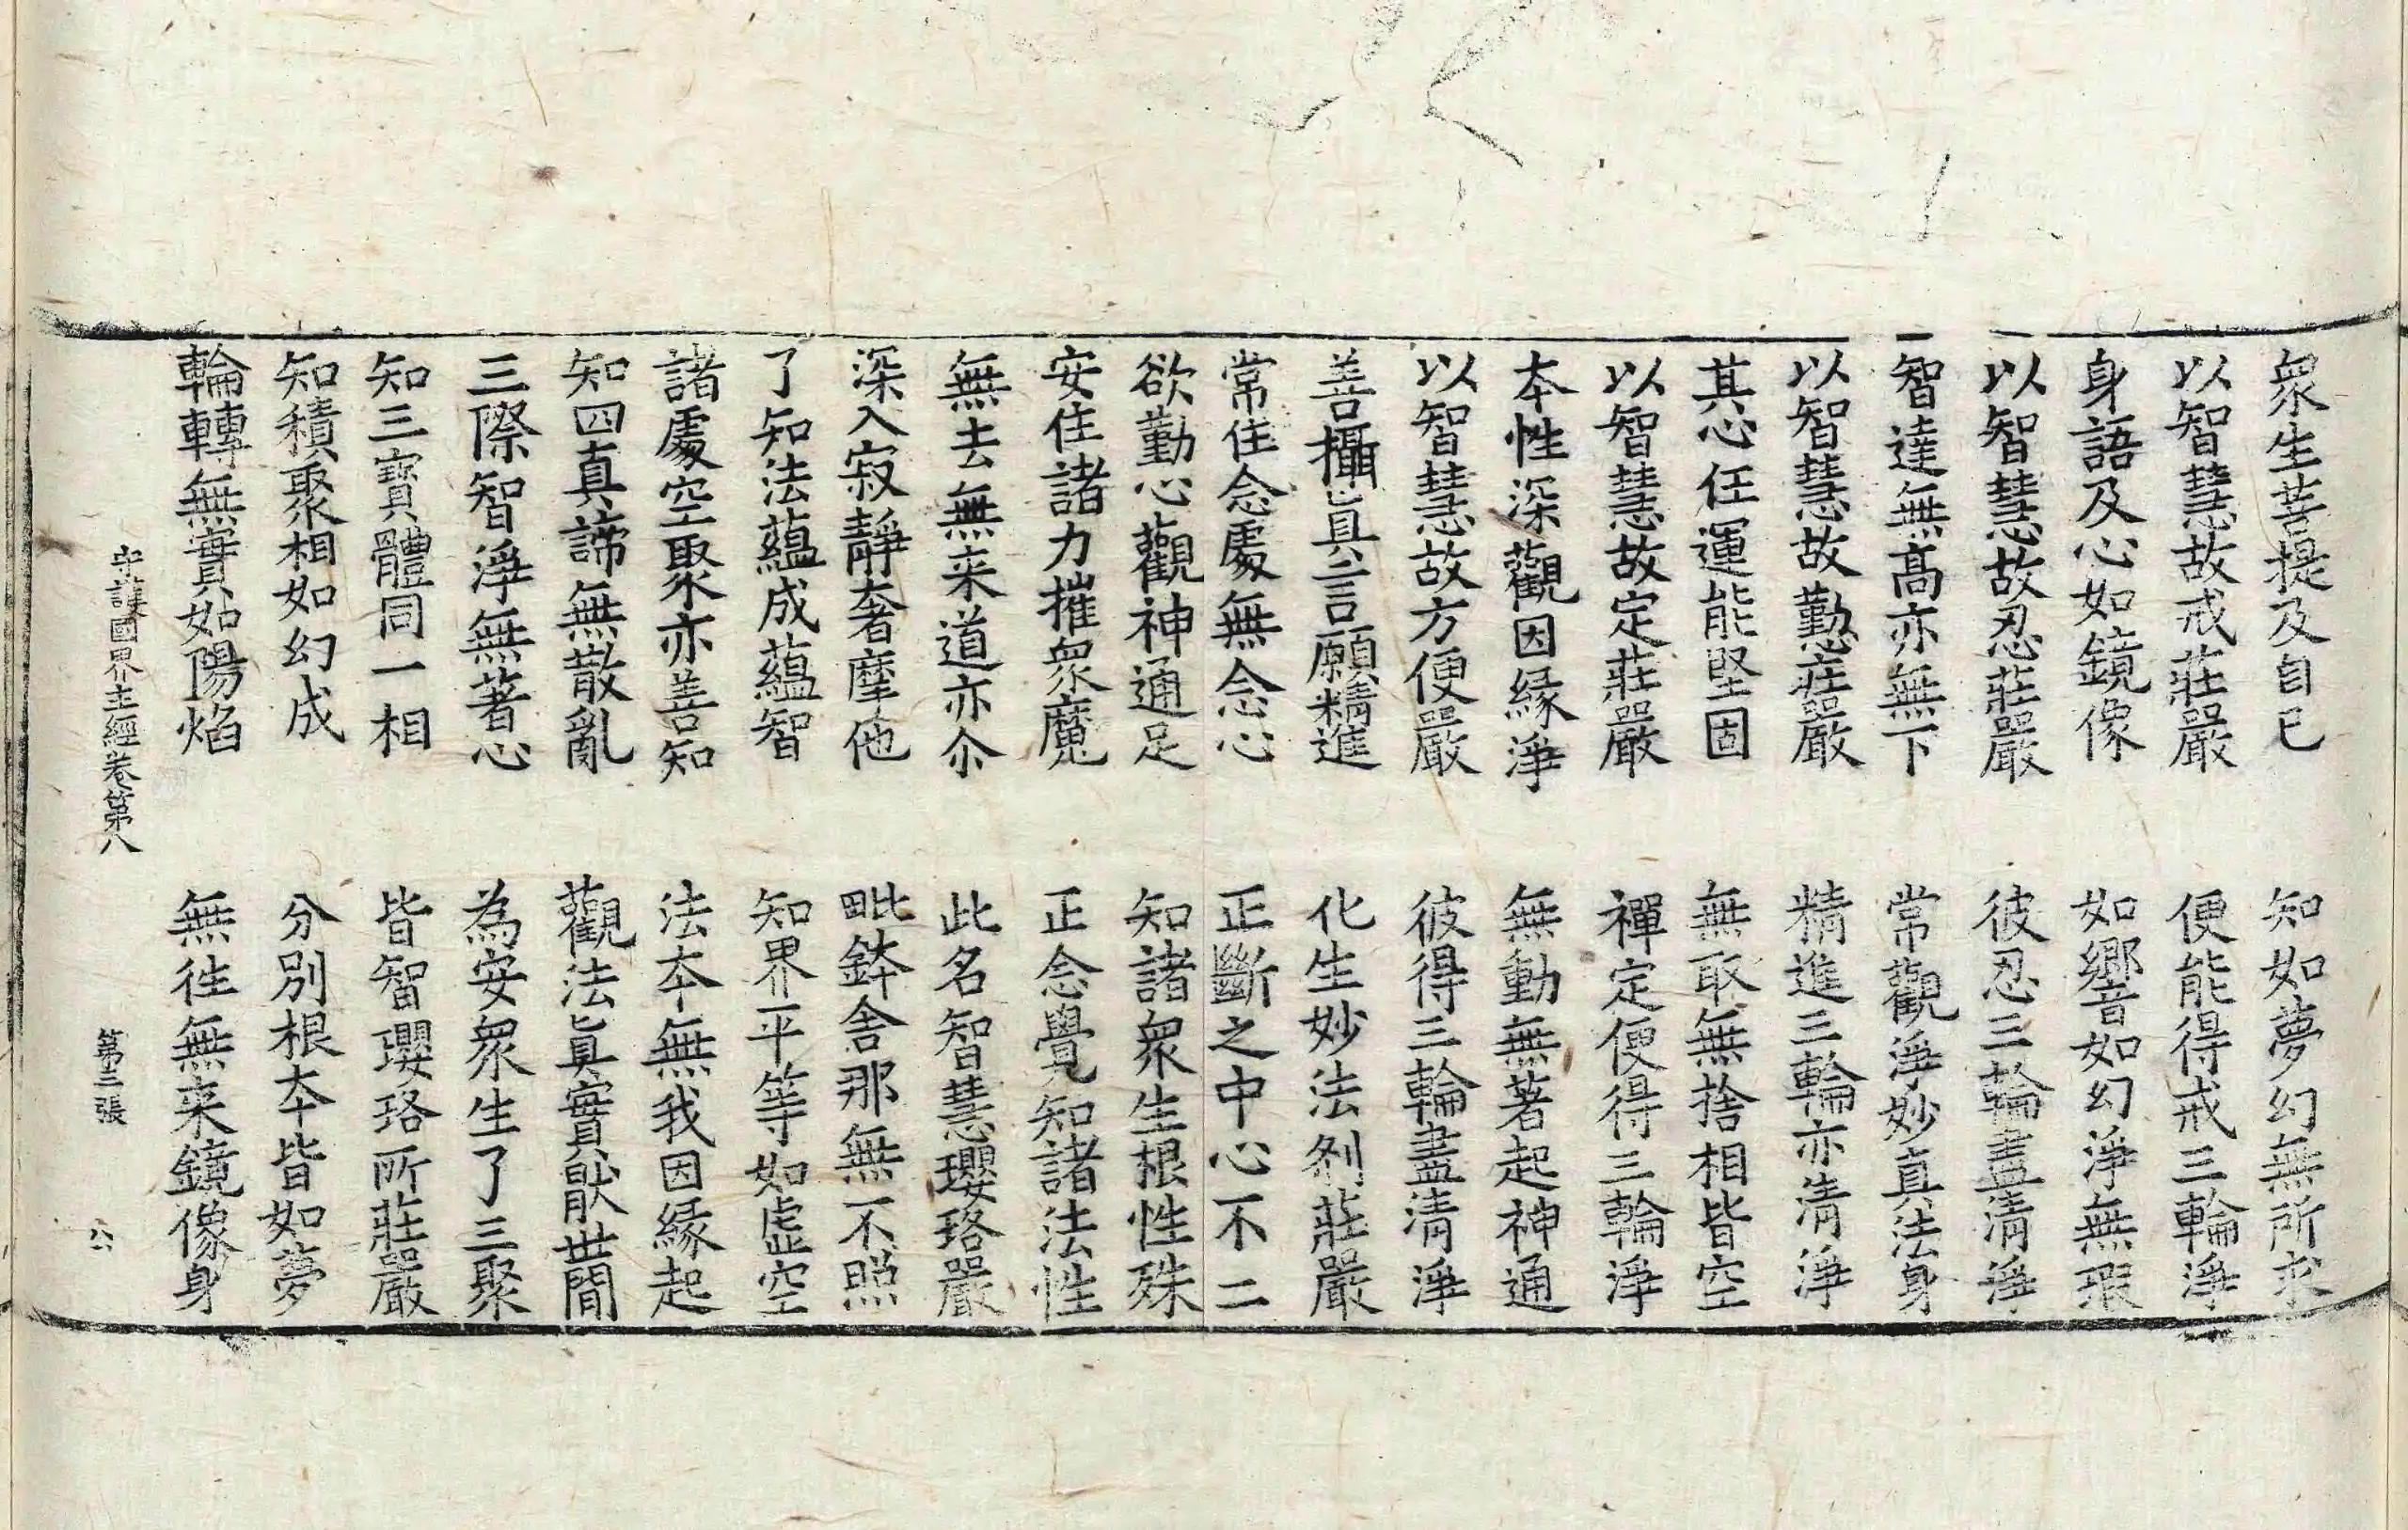 衆生菩提及自已　知如夢幻無所求
以智慧故戒莊嚴　便能得戒三輪淨
身語及心如鏡像　如響如幻淨無瑕
以智慧故忍莊嚴　彼忍三輪盡清淨
智達無高亦無下　常觀淨妙真法身
以智慧故勤莊嚴　精進三輪亦清淨
其心任運能堅固　無取無捨相皆空
以智慧故定莊嚴　禪定便得三輪淨
本性深觀因緣淨　無動無著起神通
以智慧故方便嚴　彼得三輪盡清淨
善攝真言願精進　化生妙法剎莊嚴
常住念處無念心　正斷之中心不二
欲勤心觀神通足　知諸衆生根性殊
安住諸力摧衆魔　正念覺知諸法性
無去無来道亦尒　此名智慧瓔珞嚴
深入寂靜奢摩他　毗鉢舍那無不照
了知法蘊成蘊智　知界平等如虛空
諸處空聚亦善知　法本無我因緣起
知四真諦無散亂　觀法真實猒世間
三際智淨無著心　為安衆生了三聚
知三寶體同一相　皆智瓔珞所莊嚴
知積聚相如幻成　分別根本皆如夢
輪轉無實如陽焰　無往無来鏡像身
守護國界主經卷第八　第三張